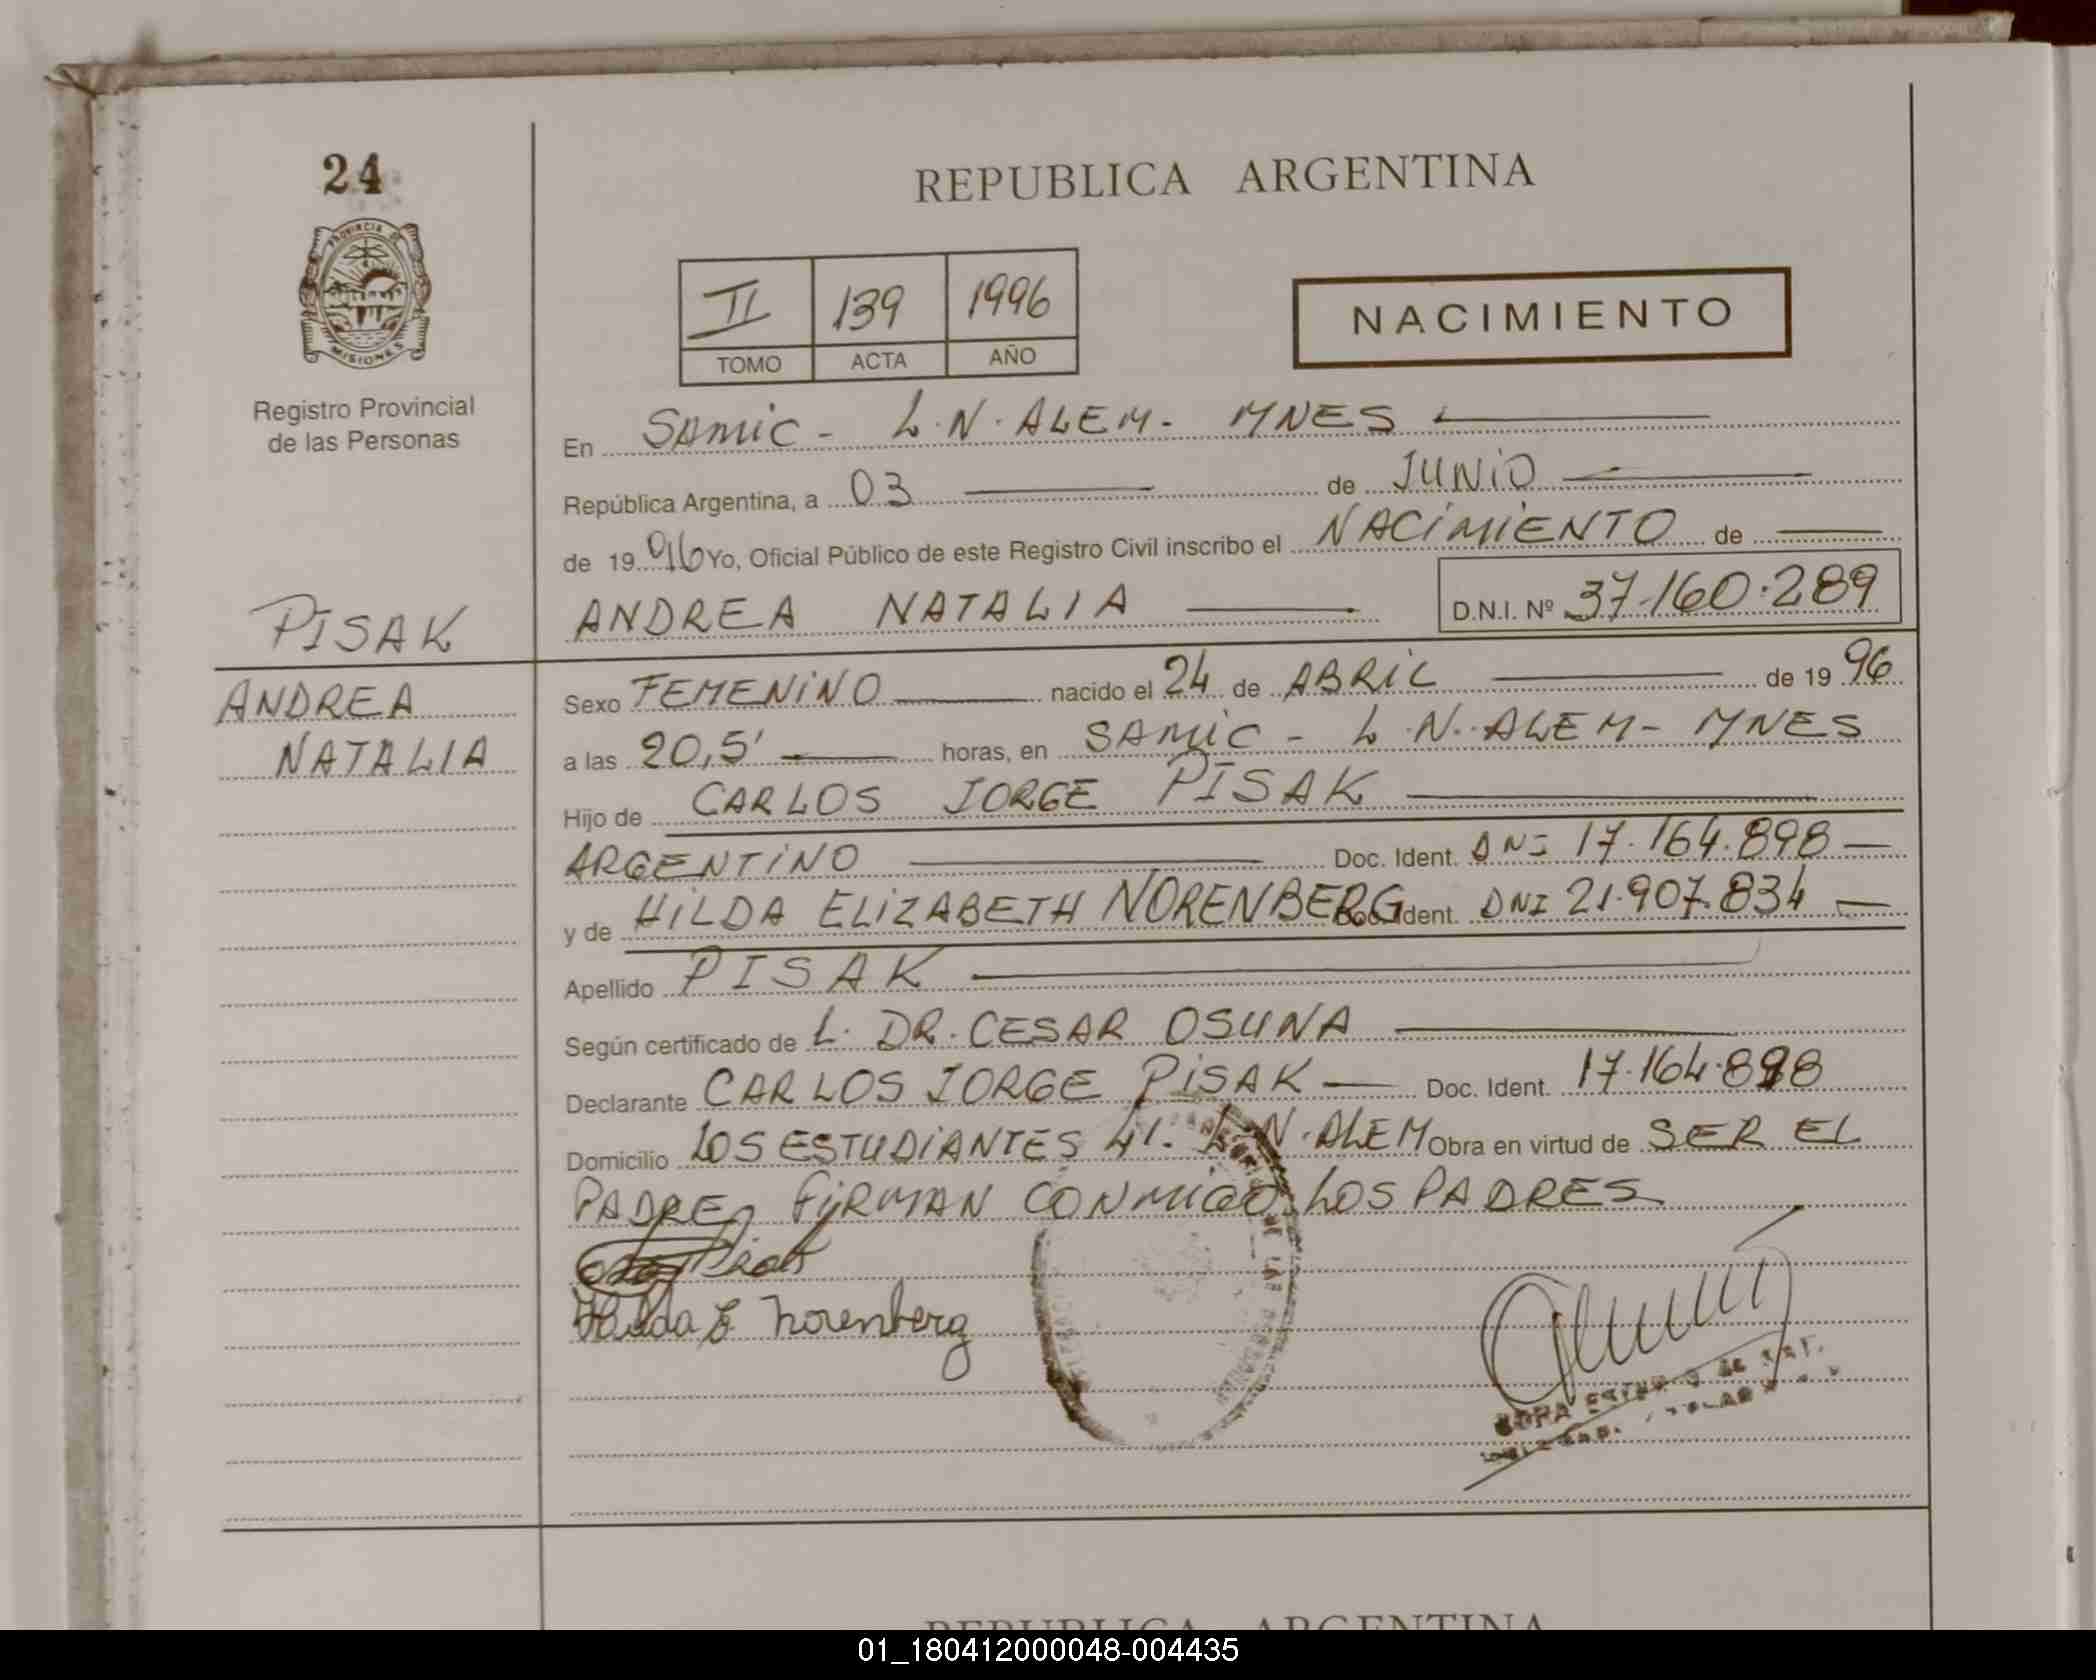 24
REPUBLICA ARGENTINA
PROVINCIA DE
MISIONES
Registro Provincial
de las Personas
II 139 1996
TOMO ACTA AÑO
NACIMIENTO
En SAMIC - L.N. ALEM - MNES
República Argentina, a 03 de JUNIO
de 1996 Yo, Oficial Público de este Registro Civil inscribo el NACIMIENTO de
ANDREA NATALIA D.N.I. Nº 37.160.289
PISAK
ANDREA
NATALIA
Sexo FEMENINO nacido el 24 de ABRIL de 1996
a las 20,5' horas, en SAMIC - L.N. ALEM - MNES
Hijo de CARLOS JORGE PISAK
ARGENTINO Doc. Ident. DNI 17.164.898
y de HILDA ELIZABETH NORENBERG Doc. Ident. DNI 21.907.834
Apellido PISAK
Según certificado de L. DR. CESAR OSUNA
Declarante CARLOS JORGE PISAK Doc. Ident. 17.164.898
Domicilio LOS ESTUDIANTES 41. L.N. ALEM Obra en virtud de SER EL
PADRE FIRMAN CONMIGO LOS PADRES
Hilda E. Norenberg
REPUBLICA ARGENTINA
01_180412000048-004435